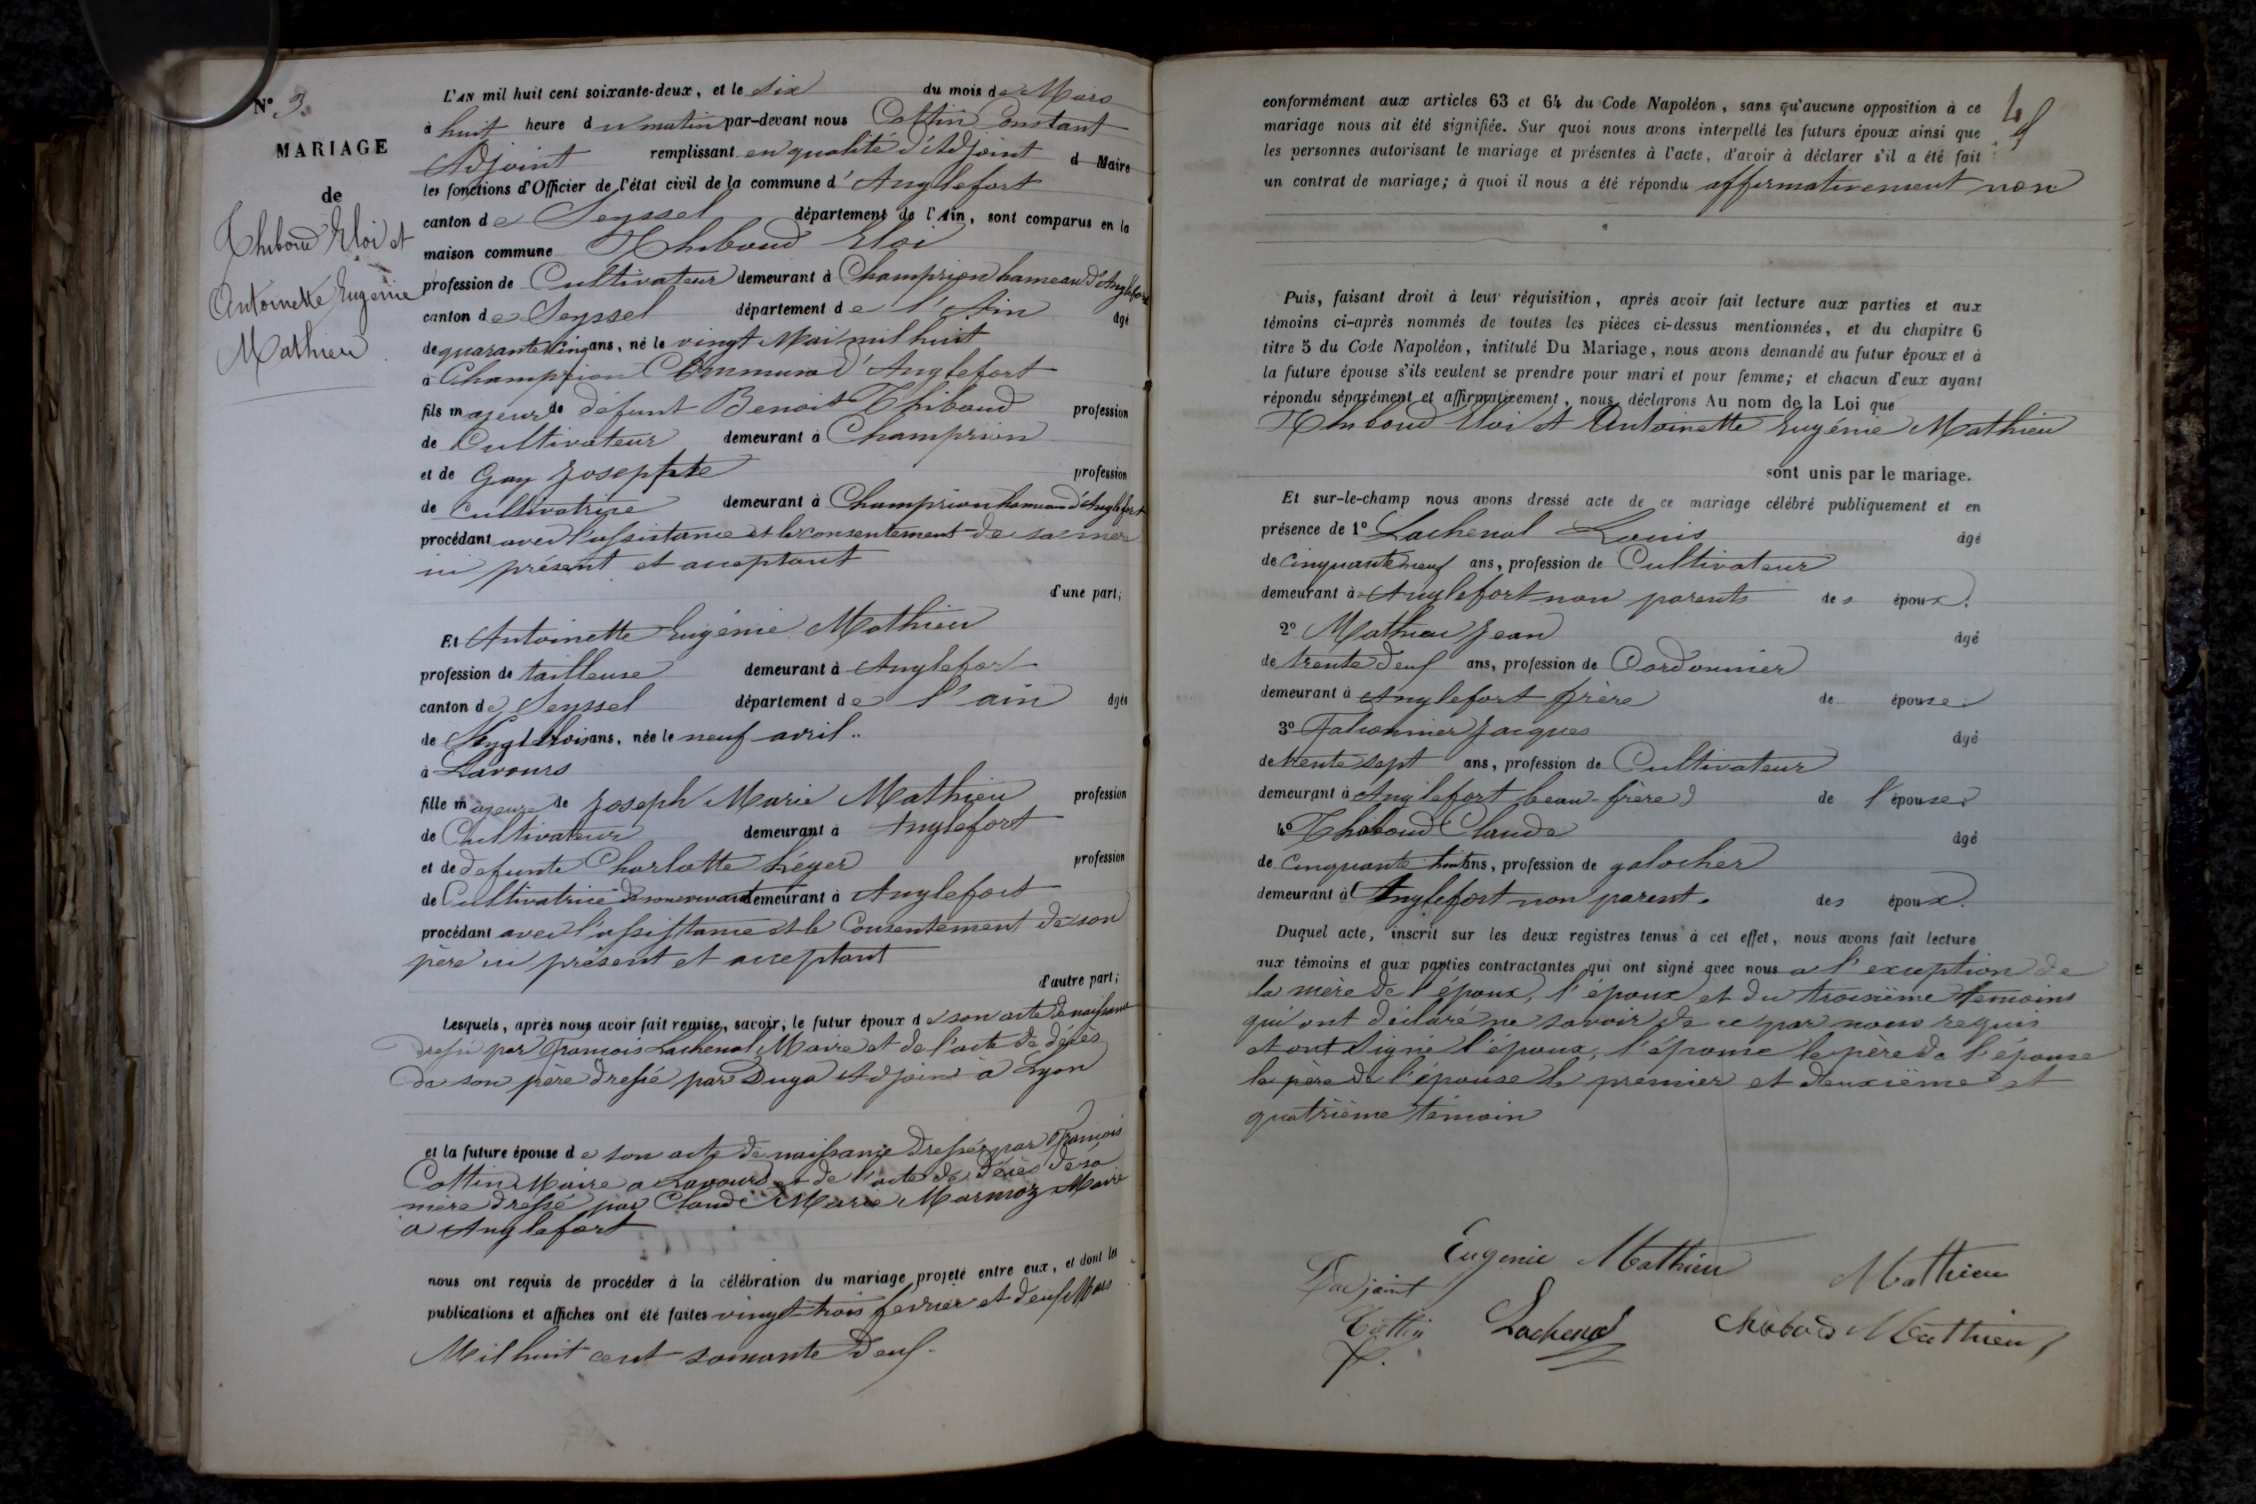 N° 3.
MARIAGE
de
Thiboud Eloi et
Antoinette Eugenie
Mathieu
L'AN mil huit cent soixante-deux, et le Six du mois de Mars
à huit heure du matin par-devant nous Cottin Constant
Adjoint remplissant en qualité d'Adjoint d Maire
les fonctions d'Officier de l'état civil de la commune d'Anglefort
canton de Seyssel département de l'Ain, sont comparus en la
maison commune Thiboud Eloi
profession de Cultivateur demeurant à Champrion hameau d'Anglefort
canton de Seyssel département de l'Ain âgé
de quarante cinq ans, né le vingt Mai mil huit
à Champrion Commune d'Anglefort
fils majeur de défunt Benoit Thiboud profession
de Cultivateur demeurant à Champrion
et de Gay Josephte profession
de Cultivatrice demeurant à Champrion hameau d'Anglefort
procédant avec l'assistance et le consentement de sa mer
ici présent et acceptant
d'une part;
Et Antoinette Eugénie Mathieu
profession de tailleuse demeurant à Anglefort
canton de Seyssel département de l'ain âgée
de Vingt trois ans, née le neuf avril..
à Lavours
fille majeure de Joseph Marie Mathieu profession
de Cultivateur demeurant à Anglefort
et de defunte Charlotte Léger profession
de Cultivatrice de son vivant demeurant à Anglefort
procédant avec l'assistance et le Consentement de son
père ici présent et acceptant
d'autre part;
Lesquels, après nous avoir fait remise, savoir, le futur époux de son acte de naissance
dressé par François Lachenal Maire et de l'acte de décès
de son père dressé par Duga Adjoint à Lyon
et la future épouse de son acte de naissance dressée par François
Cottin Maire a Lavours et de l'acte de décès de sa
mère dressé par Claude Marie Marmoz Maire
a Anglefort
nous ont requis de procéder à la célébration du mariage projeté entre eux, et dont les
publications et affiches ont été faites vingt trois fevrier et deux Mars
Mil huit cent soixante deux.
conformément aux articles 63 et 64 du Code Napoléon, sans qu'aucune opposition à ce
mariage nous ait été signifiée. Sur quoi nous avons interpellé les futurs époux ainsi que
les personnes autorisant le mariage et présentes à l'acte, d'avoir à déclarer s'il a été fait
un contrat de mariage; à quoi il nous a été répondu affirmativement non
Puis, faisant droit à leur réquisition, après avoir fait lecture aux parties et aux
témoins ci-après nommés de toutes les pièces ci-dessus mentionnées, et du chapitre 6
titre 5 du Code Napoléon, intitulé Du Mariage, nous avons demandé au futur époux et à
la future épouse s'ils veulent se prendre pour mari et pour femme; et chacun d'eux ayant
répondu séparément et affirmativement, nous déclarons Au nom de la Loi que
Thiboud Eloi et Antoinette Eugénie Mathieu
sont unis par le mariage.
Et sur-le-champ nous avons dressé acte de ce mariage célébré publiquement et en
présence de 1° Lachenal Louis âgé
de Cinquante neuf ans, profession de Cultivateur
demeurant à Anglefort non parents des époux.
2° Mathieu Jean âgé
de trente deux ans, profession de Cordonnier
demeurant à Anglefort frère de épouse.
3° Falconnier Jacques âgé
de trente sept ans, profession de Cultivateur
demeurant à Anglefort beau-frère de l'épouse
4° Thiboud Claude âgé
de Cinquante huit ans, profession de galocher
demeurant à Anglefort non parent. des époux.
Duquel acte, inscrit sur les deux registres tenus à cet effet, nous avons fait lecture
aux témoins et aux parties contractantes qui ont signé avec nous a l'exception de
la mère de l'époux, l'époux et du troisième temoins
qui ont déclaré ne savoir de ce par nous requis
et ont signé l'époux, l'épouse le père de l'épouse
le père de l'épouse le premier et deuxième et
quatrième témoin
Eugenie Mathieu
Mathieu
L'adjoint
Cottin
Lachenal
Mathieu